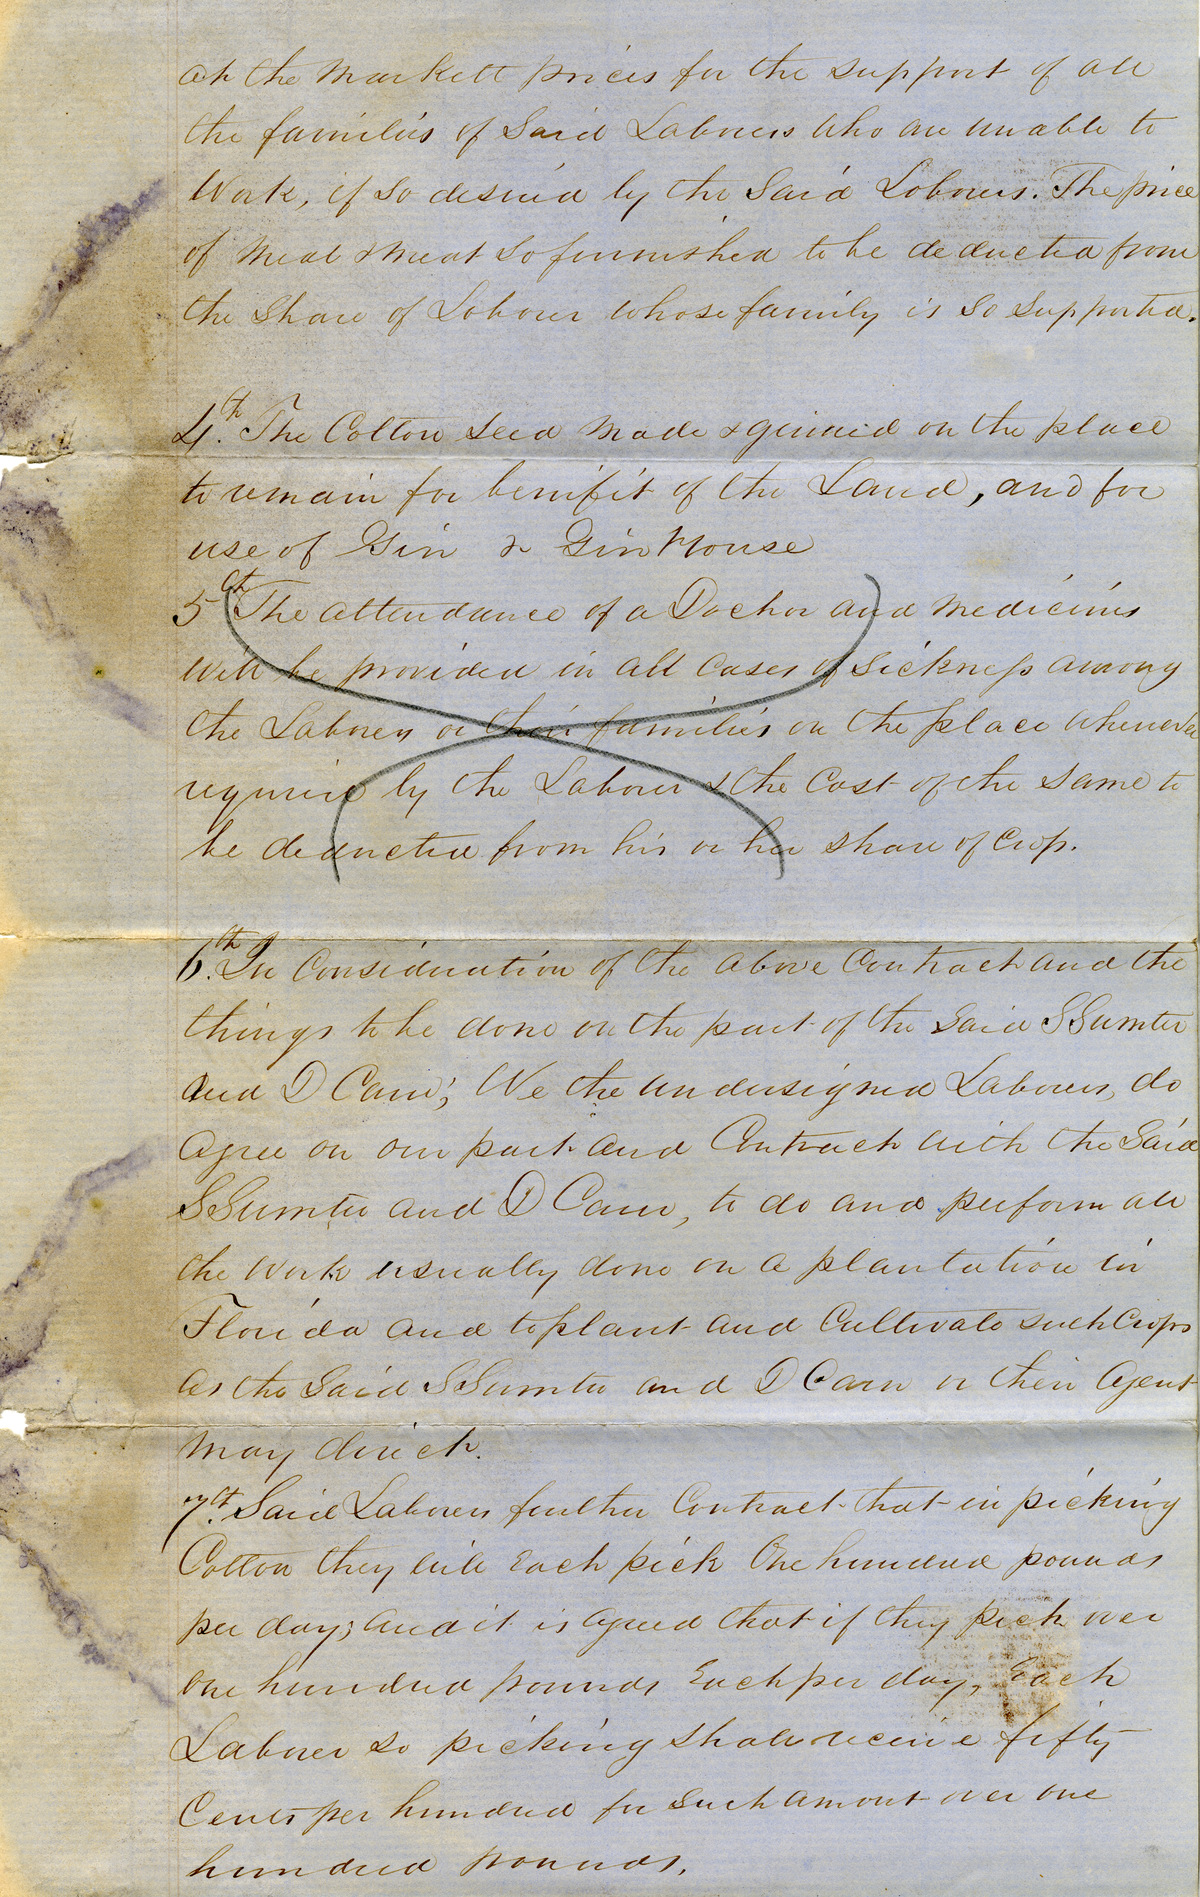 at the Markett prices for the support of all
the families of Said Labourers who are unable to
Work, if So desired by the Said Labourers. The price
of Meal & Meat So furnished to be deducted from
the Share of Labourer whose family is So Supported.
4th. The Cotton Seed Made & ginned on the place
to remain for benifit of the Land, and for
use of Gin & Gin House
5th The attendance of a Doctor and Medicines
Will be provided in all Cases of Sickness among
the Laborers or their families on the place whenever
required by the Laborer & the Cost of the Same to
be deducted from his or her Share of Crop.
6th. In Consideration of the above Contract and the
things to be done on the part of the Said S Sumter
and D Carn; We the undersigned Laborers, do
agree on our part and Contract with the Said
S Sumter and D Carn, to do and perform all
the Work usually done on a plantation in
Florida and to plant and Cultivate such Crops
as the Said S Sumter and D Carn or their Agent
may direct.
7th. Said Laborers further Contract that in picking
Cotton they will Each pick One hundred pounds
per day; and it is agreed that if they pick over
One hundred pounds Each per day, Each
Laborer So picking Shall receive fifty
Cents per hundred for Such amount over one
hundred pounds.